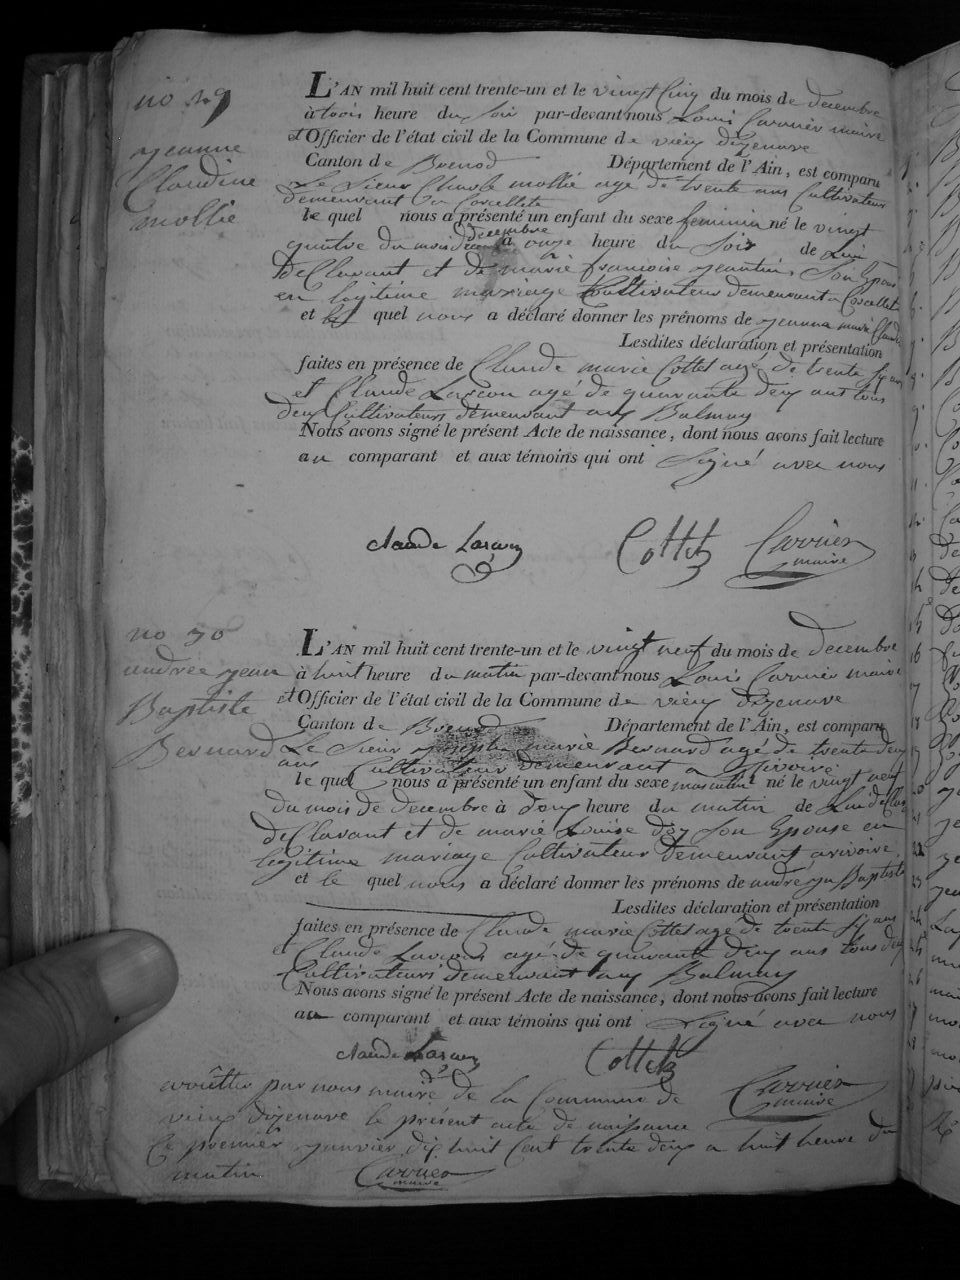 no 49
jeanne
Claudine
mollie
L'AN mil huit cent trente-un et le vingt Cinq du mois de decembre
à trois heure du soir par-devant nous Louis Carrier maire
et Officier de l'état civil de la Commune de vieux dizenave
Canton de Brenod Département de l'Ain, est comparu
Le Sieur Charle mollié agé de trente ans Cultivateur
demeurant a Corcellette
le quel nous a présenté un enfant du sexe feminin né le vingt
quatre du mois decembre à onze heure du soir de Lui
deClarant et de marie françoise jeantin Son Epouse
en legitime mariage Cultivateur demeurant a Corcellette
et le quel nous a déclaré donner les prénoms de jeanna marie Claudi
Lesdites déclaration et présentation
faites en présence de Claude marie Cottet agé de trente six ans
et Claude Larcon agé de quarante deux ans tous
deux Cultivateurs demeurant aux Balmay
Nous avons signé le présent Acte de naissance, dont nous avons fait lecture
au comparant et aux témoins qui ont Signé avec nous
claude Larcon Cottet Carrier
maire
no 50
andrée jean
Baptiste
Bernard
L'AN mil huit cent trente-un et le vingt neuf du mois de decembre
à huit heure du matin par-devant nous Louis Carrier maire
et Officier de l'état civil de la Commune de vieux dizenave
Canton de Brenod Département de l'Ain, est comparu
Le Sieur marie Bernard agé de trente deux
ans Cultivateur demeurant a rivoire
le quel nous a présenté un enfant du sexe masculin né le vingt neuf
du mois de decembre à deux heure du matin de Lui
deClarant et de marie Louise Son Epouse en
legitime mariage Cultivateur demeurant a rivoire
et le quel nous a déclaré donner les prénoms de andre jn Baptiste
Lesdites déclaration et présentation
faites en présence de Claude marie Cottet agé de trente six ans
et Claude Larcon agé de quarante deux ans tous deux
Cultivateurs demeurant aux Balmay
Nous avons signé le présent Acte de naissance, dont nous avons fait lecture
au comparant et aux témoins qui ont Signé avec nous
claude Larcon Cottet
Carrier
maire
arrêtter par nous maire de la Commune de
vieux dizenave le présent acte de naissance
Ce premier janvier dix huit Cent trente deux a huit heure du
matin Carrier
maire